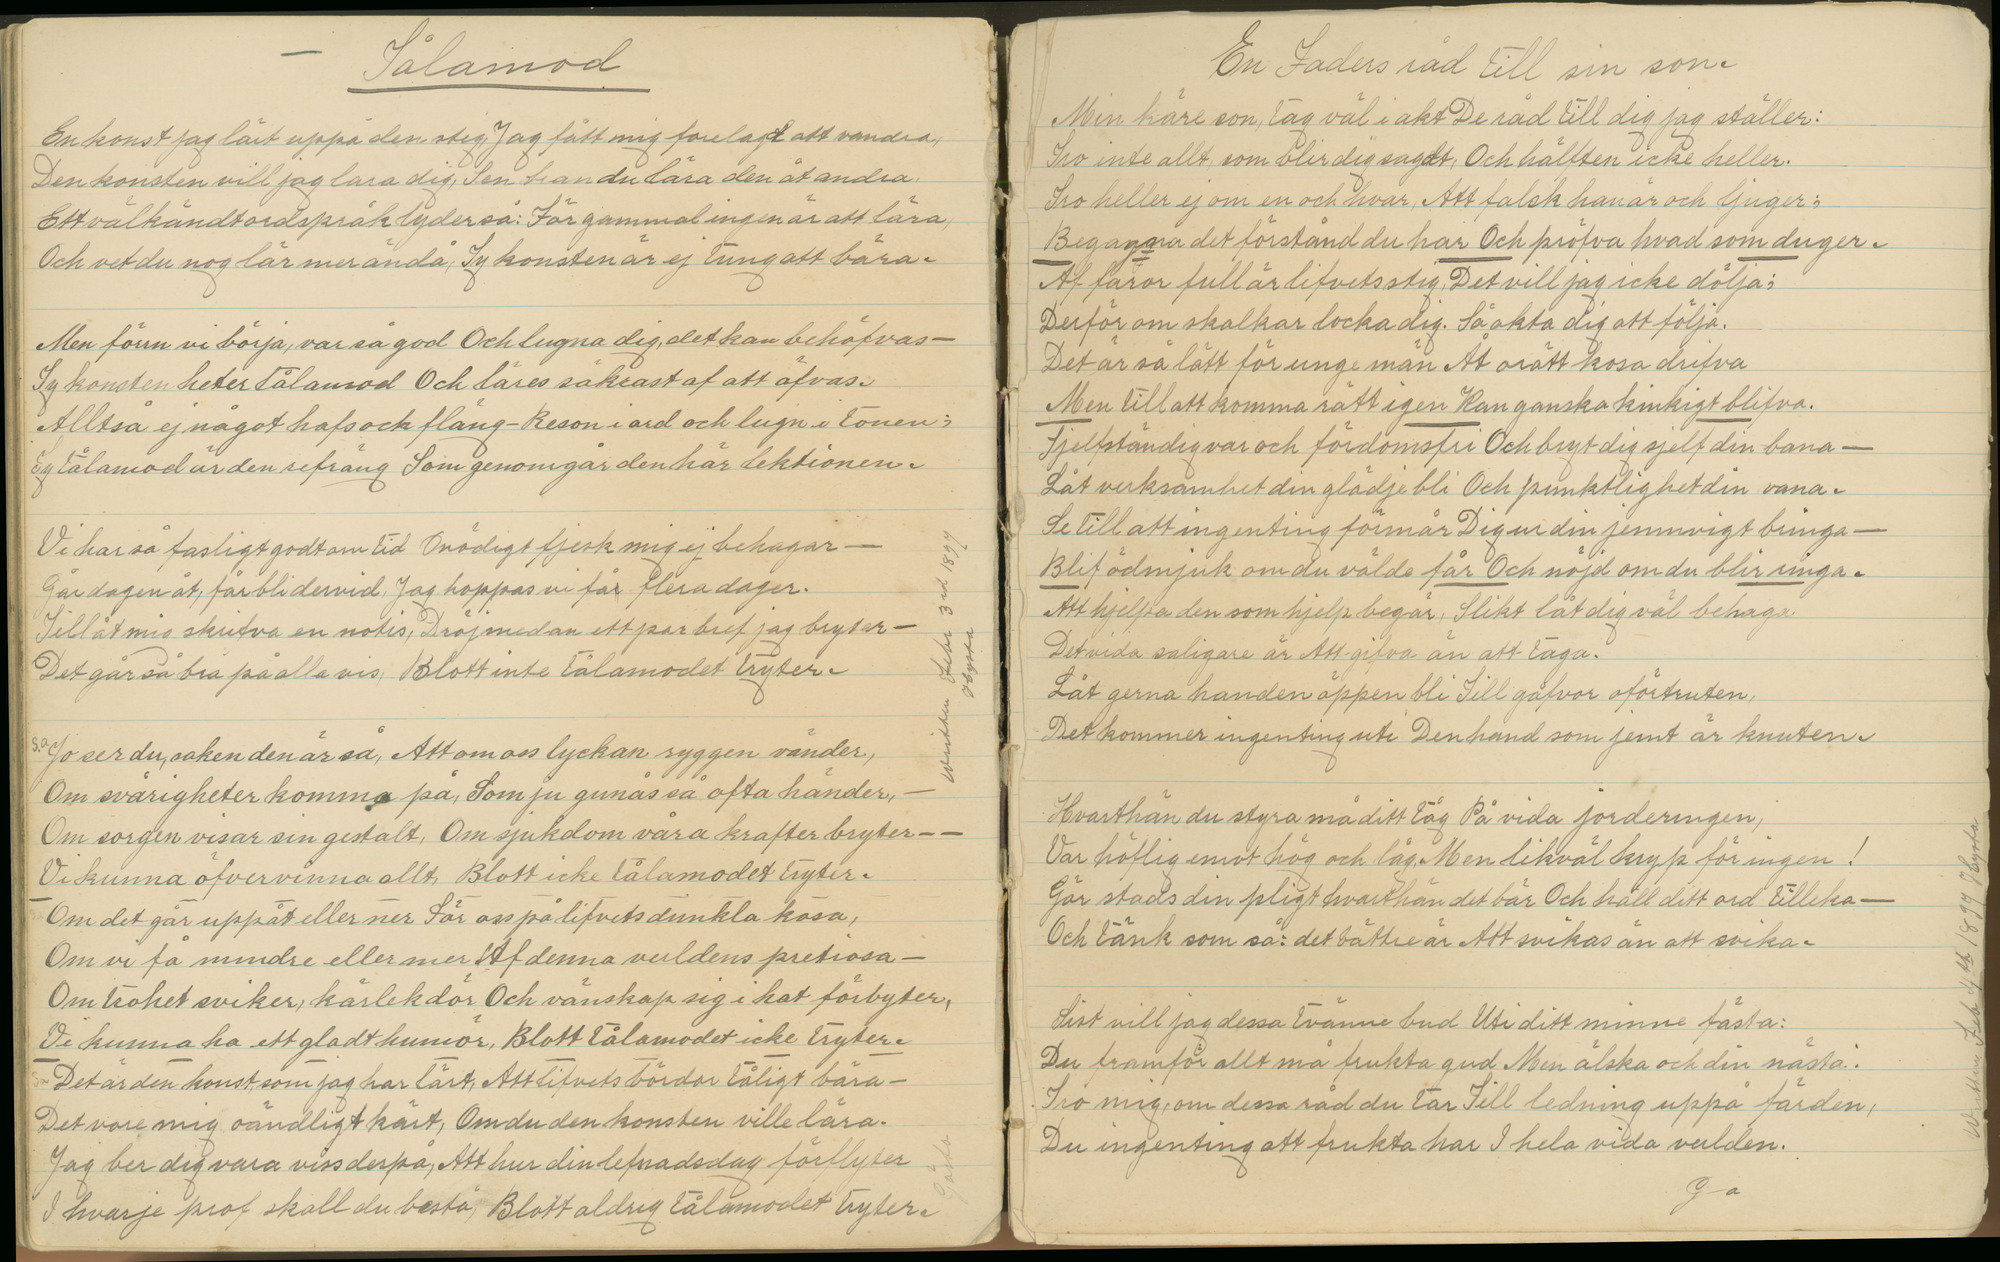 Tålamod
En konst jag lärt uppå den stig, Jag fått mig forelagt att vandra,
Den konsten vill jag lara dig, Sen kan du lära den åt andra.
Ett välkändt ordspråk lyder så: För gammal ingen är att lära,
Och vet du nog lär mer ändå, Ty konsten är ej tung att bära.
Men förrn vi börja, var så god Och lugna dig, det kan behöfvas—
Ty konsten heter tålamod Och läres säkrast af att öfvas.
Alltså ej något hafs ock fläng— Reson i ord och lugn i tonen;
Ty tålamod är den refräng Som genomgår den här lektionen.
Vi har så fasligt godt om tid Onödigt fjesk mig ej behagar—
Går dagen åt, får bli dervid, Jag hoppas vi får flera dagar.
Tillåt mig skrifva en notis, Dröj medan ett par bref jag bryter—
Det går så bra på alla vis, Blott inte tålamodet tryter.
Jo ser du, saken den är så, Att om oss lyckan ryggen vänder,
Om svårigheter komma på, Som ju gunås så ofta händer,—
Om sorgen visar sin gestalt, Om sjukdom våra krafter bryter——
Vi kunna öfvervinna allt, Blott icke tålamodet tryter.
Om det går uppåt eller ner För oss på lifvets dunkla kosa,
Om vi få mindre eller mer Af denna verldens pretiosa—
Om trohet sviker, kärlek dör Och vänskap sig i hat förbyter,
Vi kunna ha ett gladt humör, Blott tålamodet icke tryter.
Det är den konst, som jag har lärt, Att lifvets bördor tåligt bära—
Det vore mig oändligt kärt, Om du den konsten ville lära.
Jag ber dig vara viss derpå, Att hur din lefnadsdag förflyter
I hvarje prof skall du bestå, Blott aldrig tålamodet tryter.
Written Febr 3rd 1897
En Faders råd till sin son.
Min käre son, tag väl i akt De råd till dig jag ställer:
Tro inte allt, som blir dig sagdt, Och hälften icke heller.
Tro heller ej om en och hvar, Att falsk han är och ljuger;
Begagna det förstånd du har Och pröfva hvad som duger.
Af faror full är lifvets stig, Det vill jag icke dölja;
Derför om skalkar locka dig. Så akta dig att följa.
Det är så lätt för unge män Åt orätt kosa drifva
Men till att komma rätt igen Kan ganska kinkigt blifva.
Sjelfständig var och fördomsfri Och bryt dig sjelf din bana—
Låt verksamhet din glädje bli Och punktlighet din vana.
Se till att ingenting förmår Dig ur din jemnvigt bringa—
Blif ödmjuk om du välde får Och nöjd om du blir ringa.
Att hjelpa den som hjelp begär, Slikt låt dig väl behaga
Det vida saligare är Att gifva än att taga.
Låt gerna handen öppen bli Till gåfvor oförtruten,
Det kommer ingenting uti Den hand som jemt är knuten.
Hvarthän du styra må ditt tåg På vida jorderingen,
Var höflig emot hög och låg, Men likväl kryp för ingen!
Gör stads din pligt hvarthän det bär Och håll ditt ord tillika—
Och tänk som så: det bättre är Att svikas än att svika.
Sist vill jag dessa tvänne bud Uti ditt minne fästa:
Du framför allt må frukta gud Men älska och din nästa.
Tro mig, om dessa råd du tar Till ledning uppå färden,
Du ingenting att frukta har I hela vida verlden.
G-a
Written Feb 4th 1897